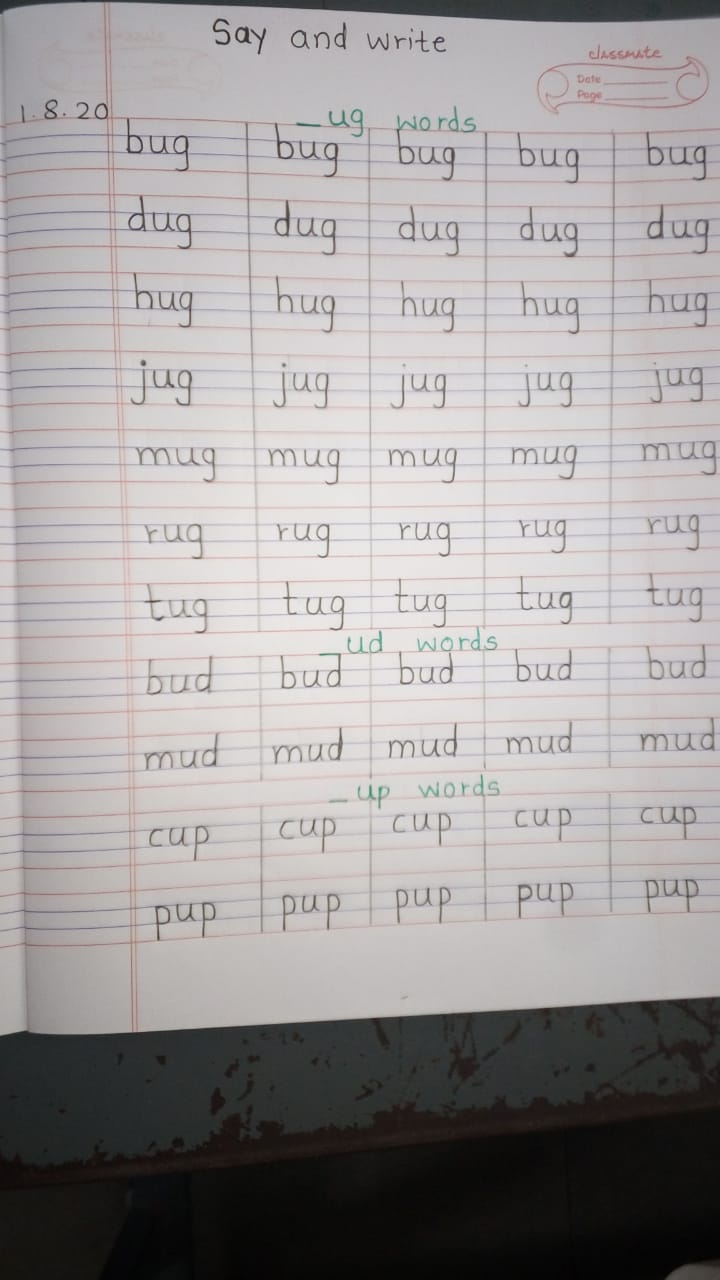 Say and write
classmate
Date
Page
1.8.20
_ug words
bug bug bug bug bug
dug dug dug dug dug
hug hug hug hug hug
jug jug jug jug jug
mug mug mug mug mug
rug rug rug rug rug
tug tug tug tug tug
_ud words
bud bud bud bud bud
mud mud mud mud mud
_up words
cup cup cup cup cup
pup pup pup pup pup